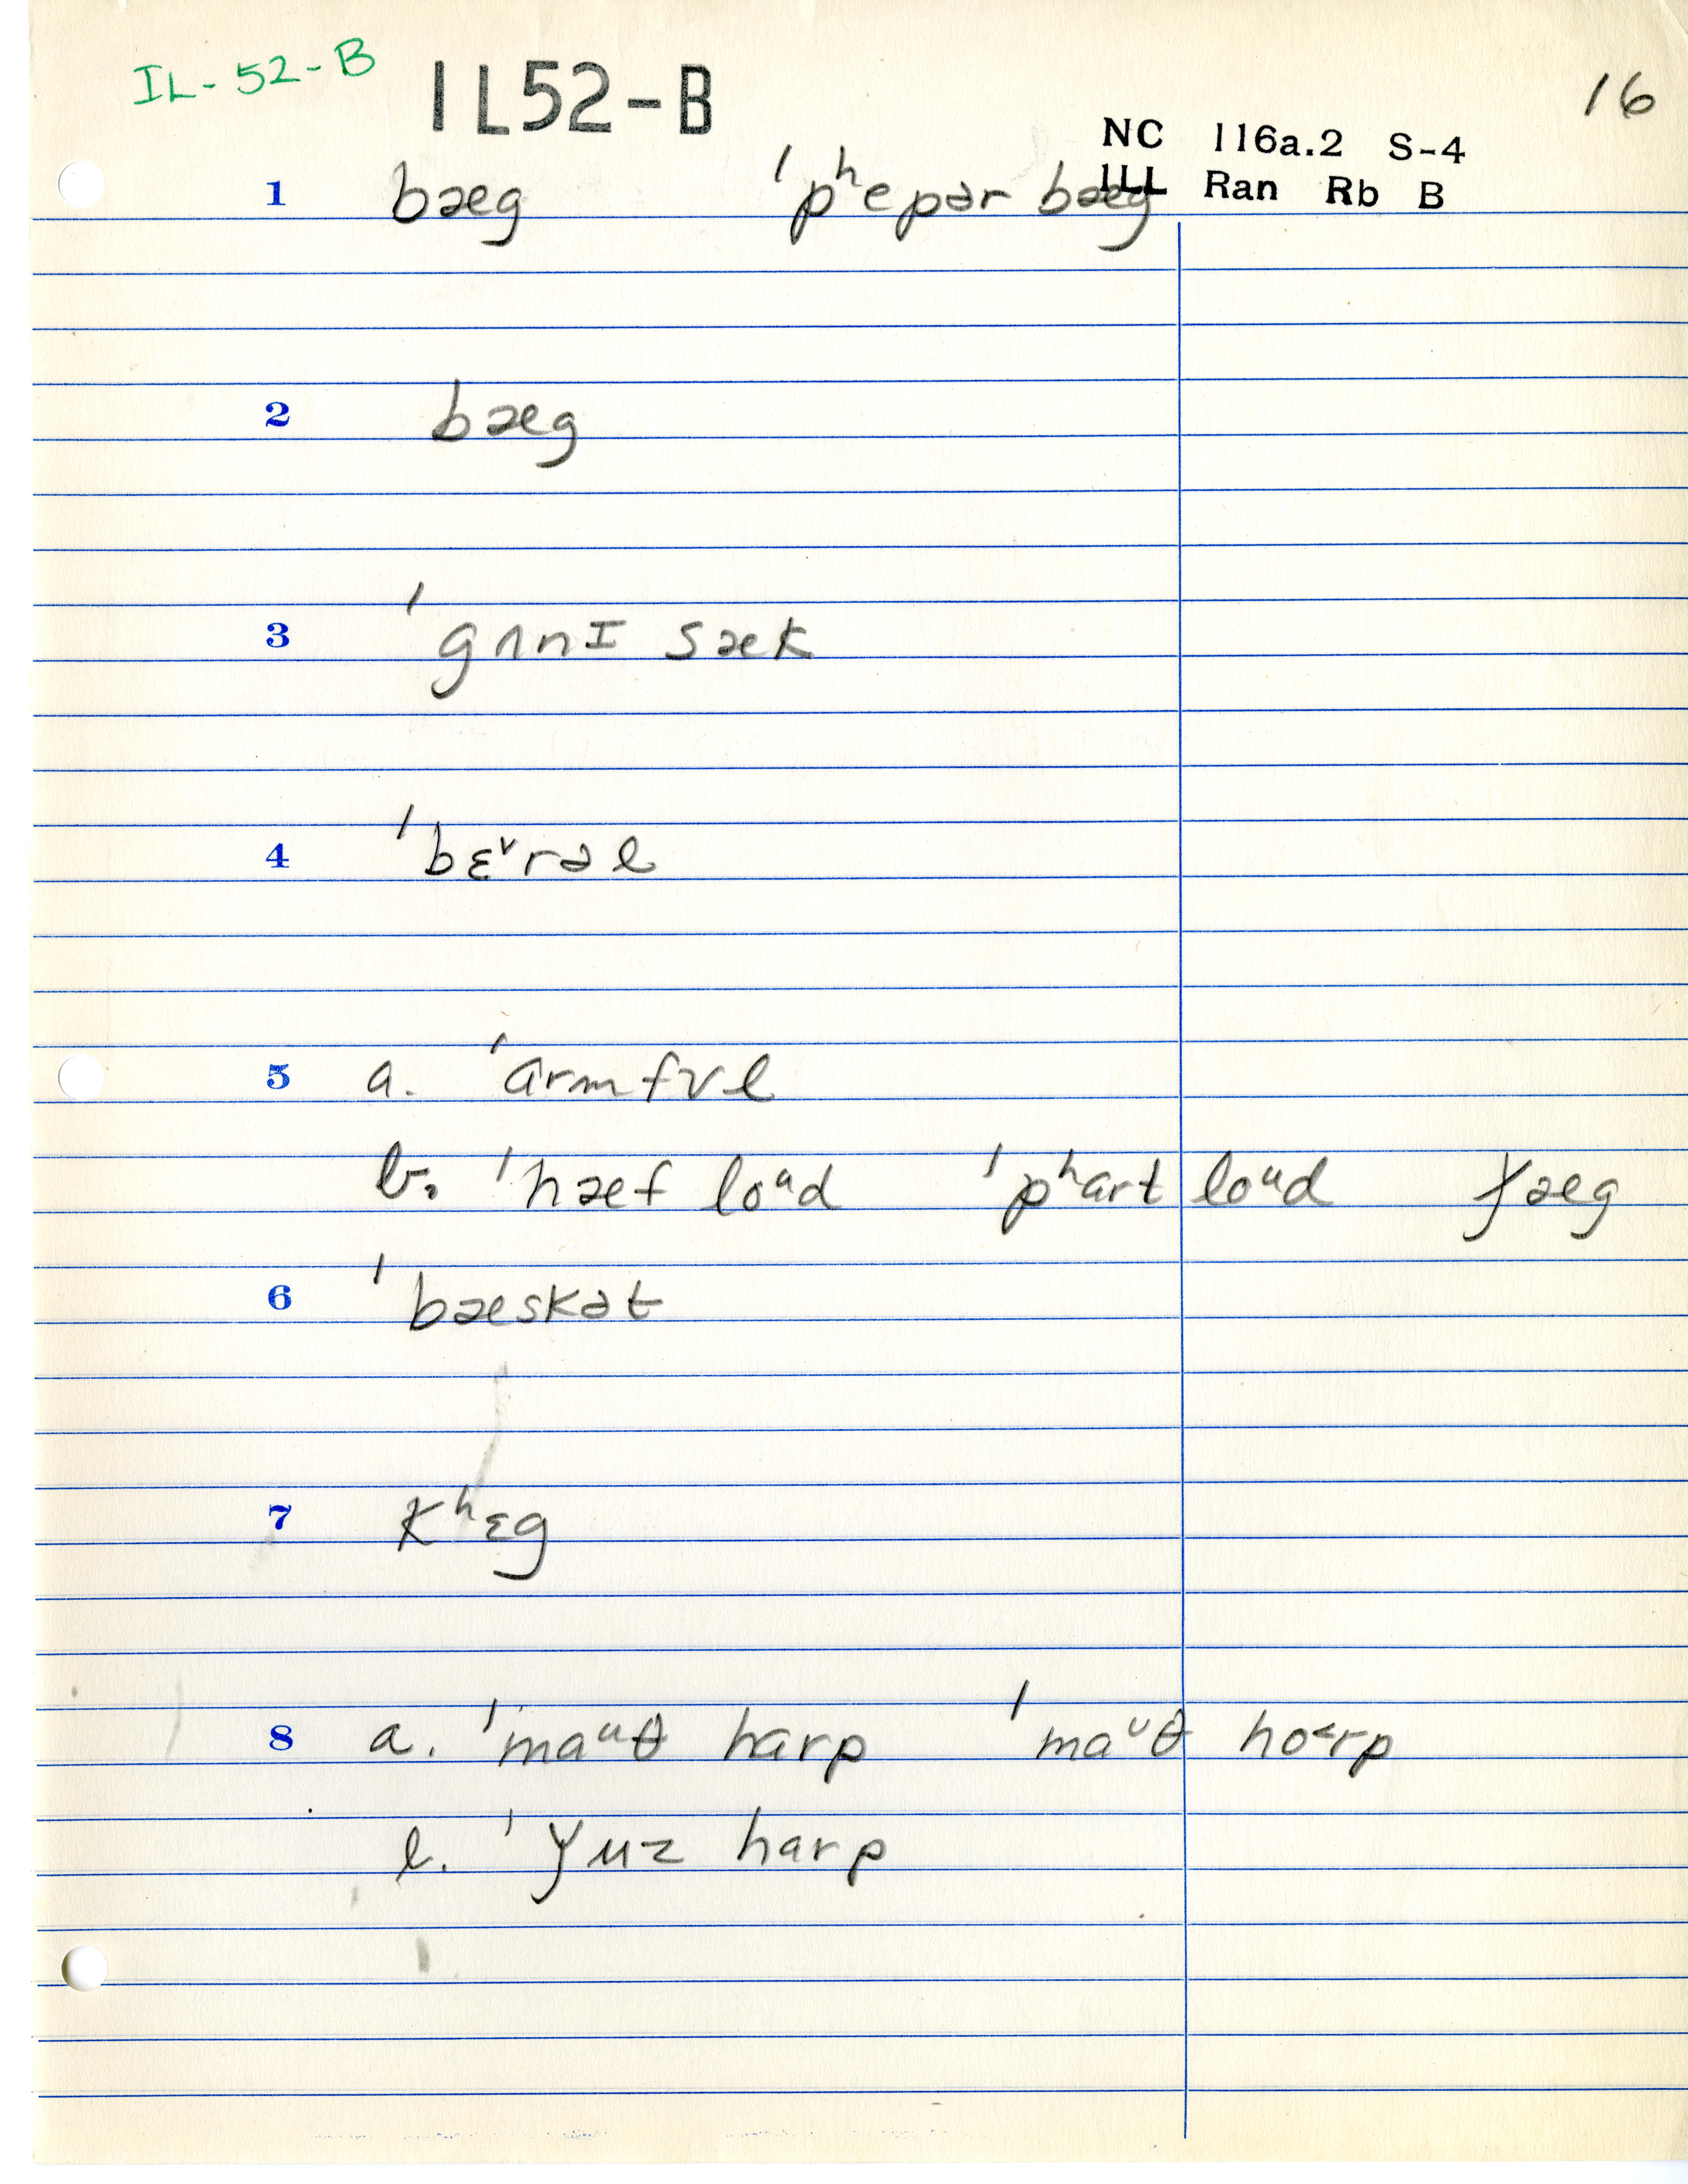 IL-52-B IL52-B 16
NC 116a.2 S-4
ILL Ran Rb B
1 bæg ˈpʰepər bæg
2 bæg
3 ˈgʌnɪ sæk
4 ˈbɛ˅rəl
5 a. ˈɑrmfʊl
b. ˈhæf loᵘd ˈpʰɑrt loᵘd ǰæg
6 ˈbæskət
7 kʰɛg
8 a. ˈmaᵘθ harp ˈmaᶷθ hɒ˂rp
b. ˈǰuz harp